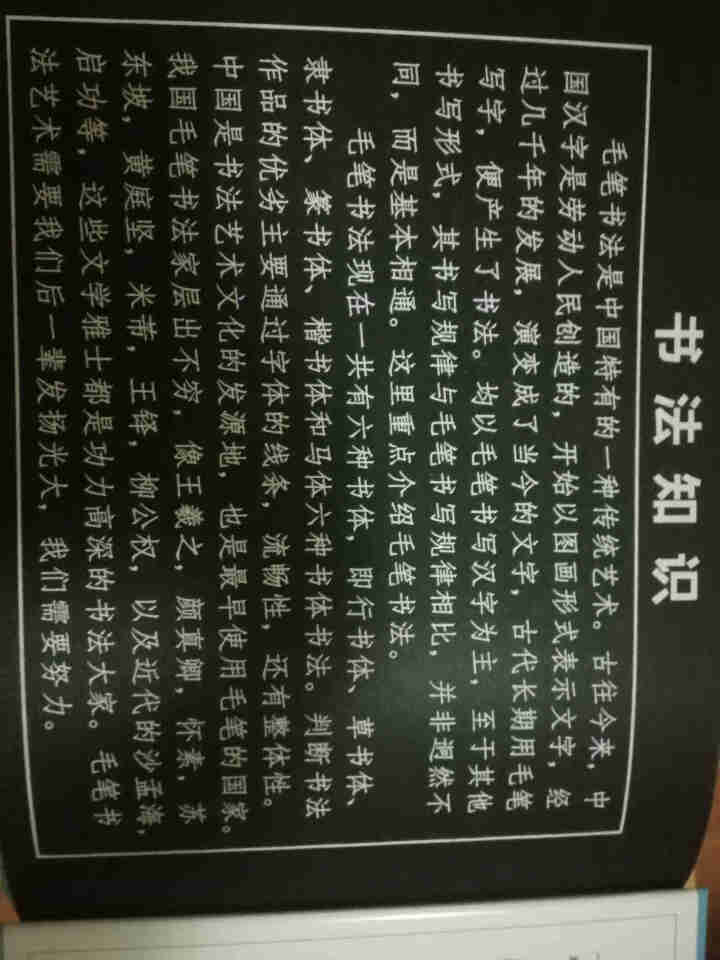 书法知识
毛笔书法是中国特有的一种传统艺术。古往今来，中
国汉字是劳动人民创造的，开始以图画形式表示文字，经
过几千年的发展，演变成了当今的文字，古代长期用毛笔
写字，便产生了书法。均以毛笔书写汉字为主，至于其他
书写形式，其书写规律与毛笔书写规律相比，并非迥然不
同，而是基本相通。这里重点介绍毛笔书法。
毛笔书法现在一共有六种书体，即行书体、草书体、
隶书体、篆书体、楷书体和马体六种书体书法。判断书法
作品的优劣主要通过字体的线条，流畅性，还有整体性。
中国是书法艺术文化的发源地，也是最早使用毛笔的国家。
我国毛笔书法家层出不穷，像王羲之，颜真卿，怀素，苏
东坡，黄庭坚，米芾，王铎，柳公权，以及近代的沙孟海，
启功等，这些文学雅士都是功力高深的书法大家。毛笔书
法艺术需要我们后一辈发扬光大，我们需要努力。